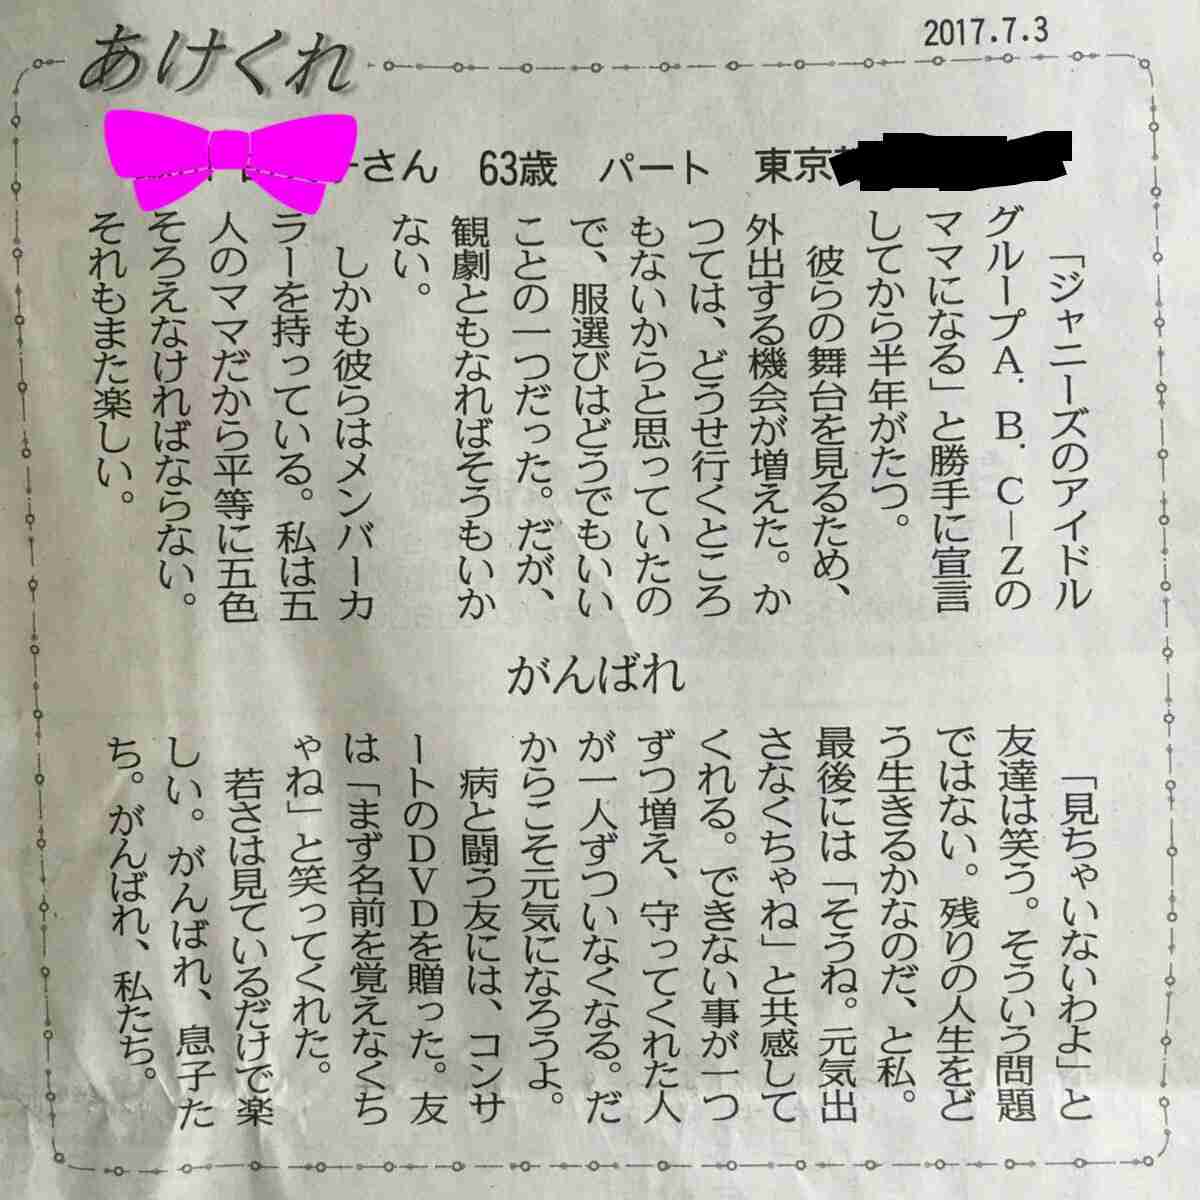 2017.7.3
あけくれ
さん 63歳 パート 東京
「ジャニーズのアイドル
グループA.B.C-Zの
ママになる」と勝手に宣言
してから半年がたつ。
彼らの舞台を見るため、
外出する機会が増えた。か
つては、どうせ行くところ
もないからと思っていたの
で、服選びはどうでもいい
ことの一つだった。だが、
観劇ともなればそうもいか
ない。
しかも彼らはメンバーカ
ラーを持っている。私は五
人のママだから平等に五色
そろえなければならない。
それもまた楽しい。
がんばれ
「見ちゃいないわよ」と
友達は笑う。そういう問題
ではない。残りの人生をど
う生きるかなのだ、と私。
最後には「そうね。元気出
さなくちゃね」と共感して
くれる。できない事が一つ
ずつ増え、守ってくれた人
が一人ずついなくなる。だ
からこそ元気になろうよ。
病と闘う友には、コンサ
ートのDVDを贈った。友
は「まず名前を覚えなくち
ゃね」と笑ってくれた。
若さは見ているだけで楽
しい。がんばれ、息子た
ち。がんばれ、私たち。